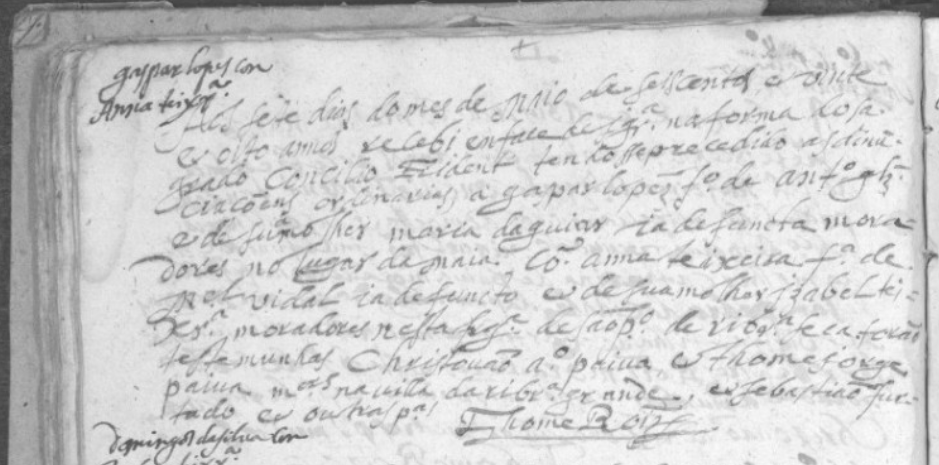 gaspar lopes con
Anna teixrª
Aos sete dias do mes de maio de seiscentos e vinte
e oito annos recebi em face de Igrª na forma do sa-
grado Concilio Trident tendosse precedido as dinũ-
ciacoens ordinarias a gaspar lopes fº de antº glz
e de sua molher maria daguiar ia defuncta mora-
dores no lugar da maia. Cõ anna teixeira fª de
Mel vidal ia defuncto e de sua molher Izabel tei-
xrª moradores nesta frgª de saõ pº de ribrª seca foraõ
testemunhas Christovaõ aº paiva, e thome jorge
paiva mres na villa da ribrª grande, e sebastiaõ fur-
tado e outras pªs Thome Roiz
domingos da silva con